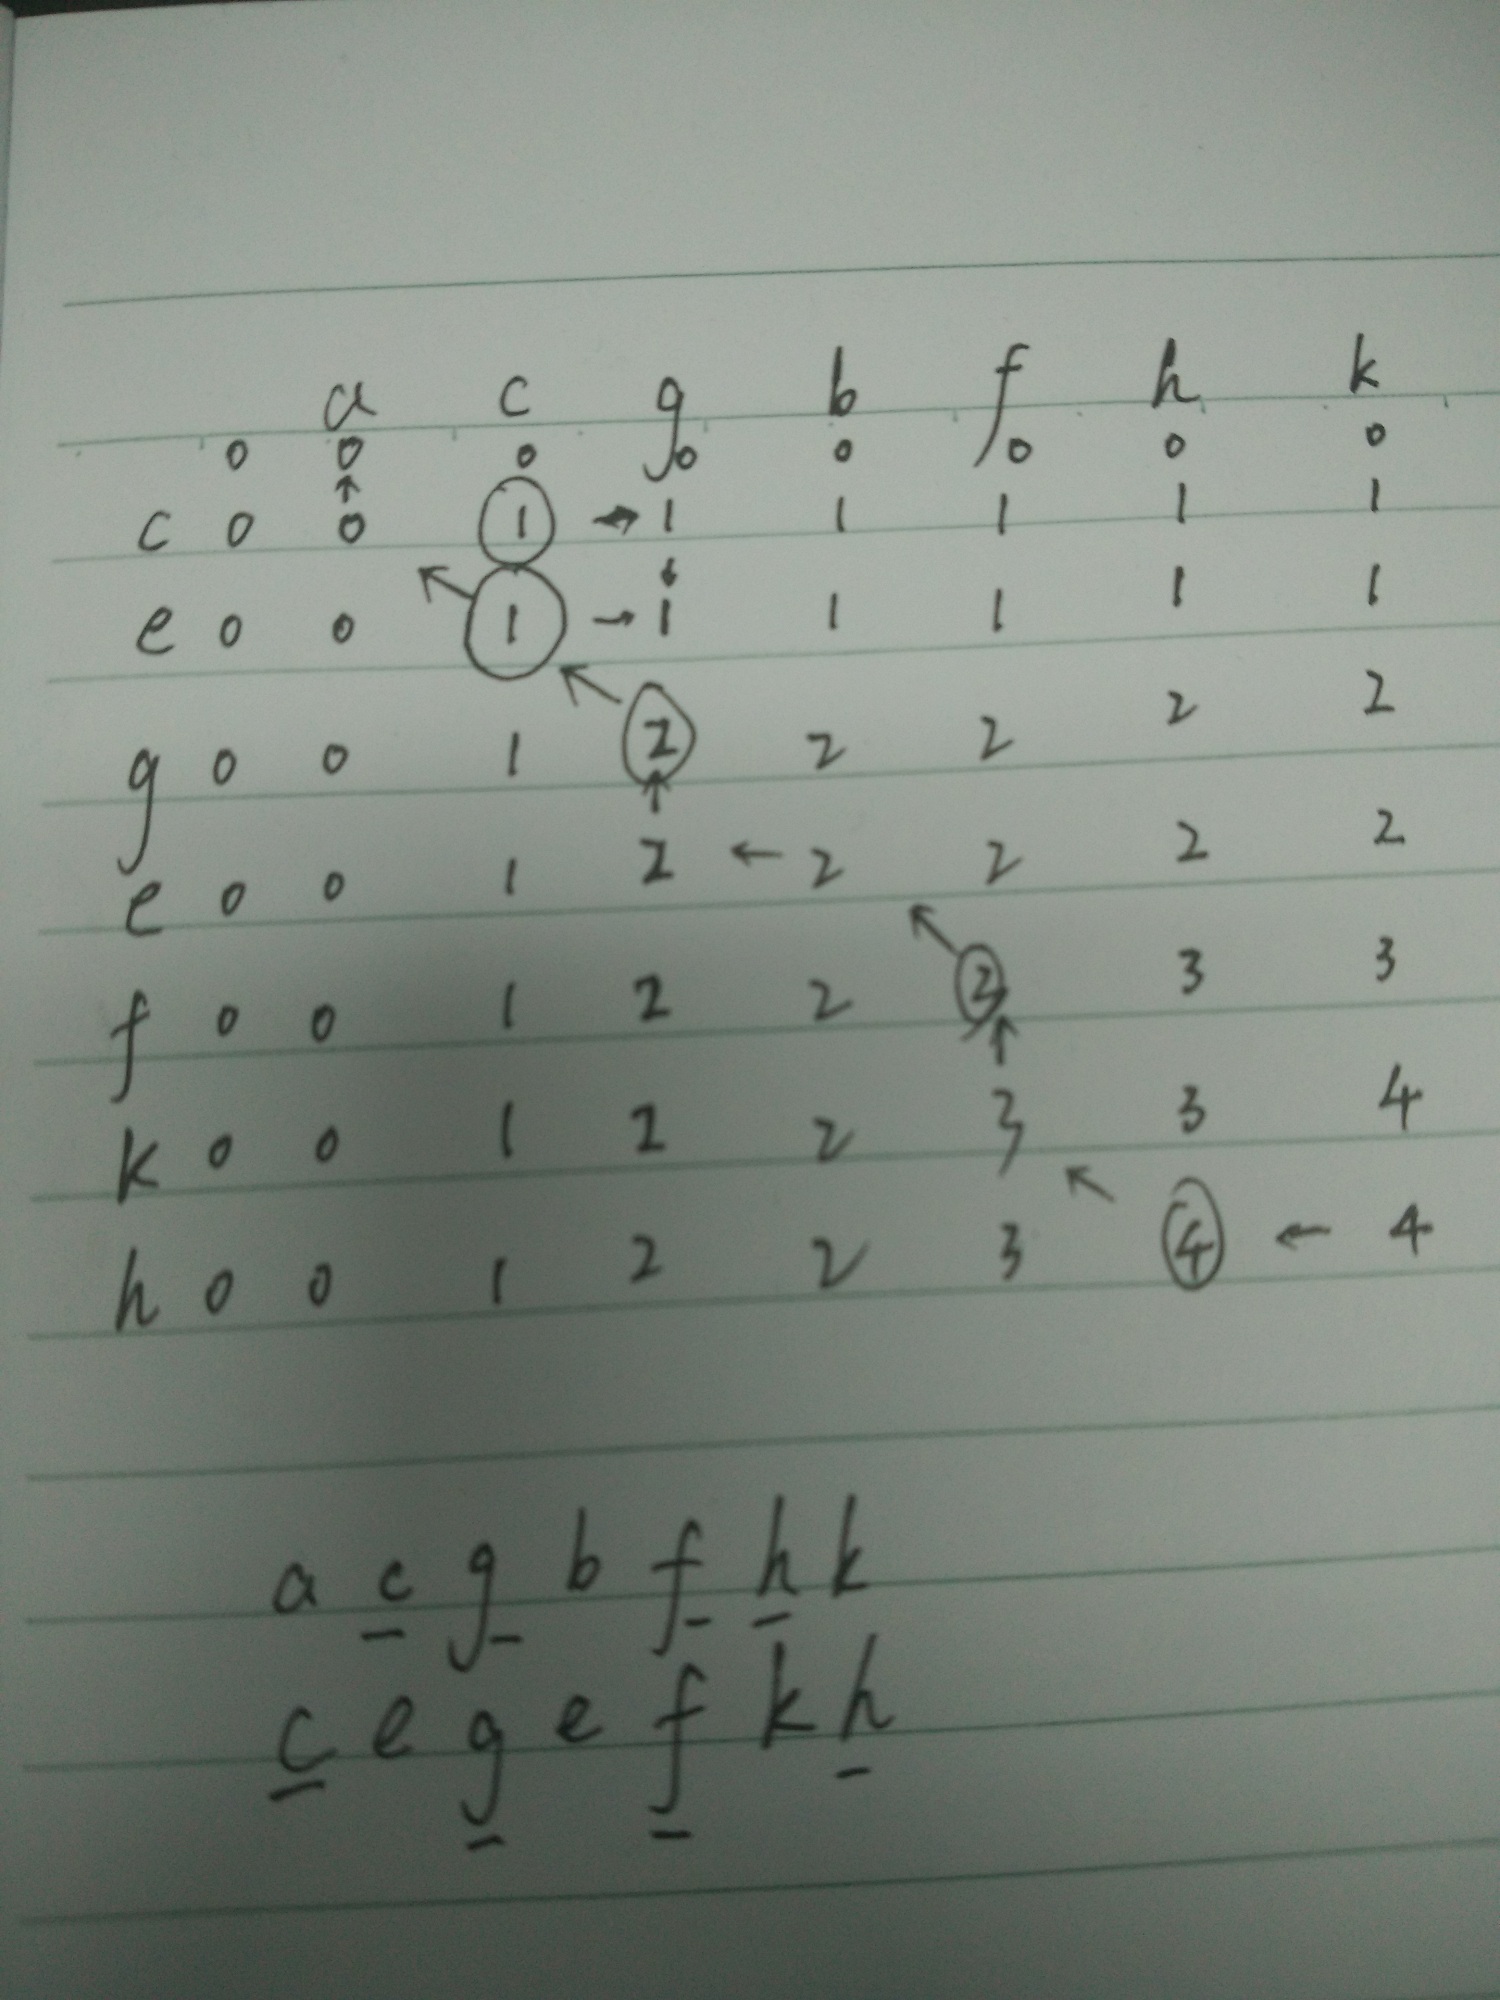 a c g b f h k
0 0 0 0 0 0 0 0
c 0 0 1 → 1 1 1 1 1
e 0 0 1 → 1 1 1 1 1
g 0 0 1 2 2 2 2 2
e 0 0 1 2 ← 2 2 2 2
f 0 0 1 2 2 3 3 3
k 0 0 1 2 2 3 3 4
h 0 0 1 2 2 3 4 ← 4
a c g b f h k
c e g e f k h